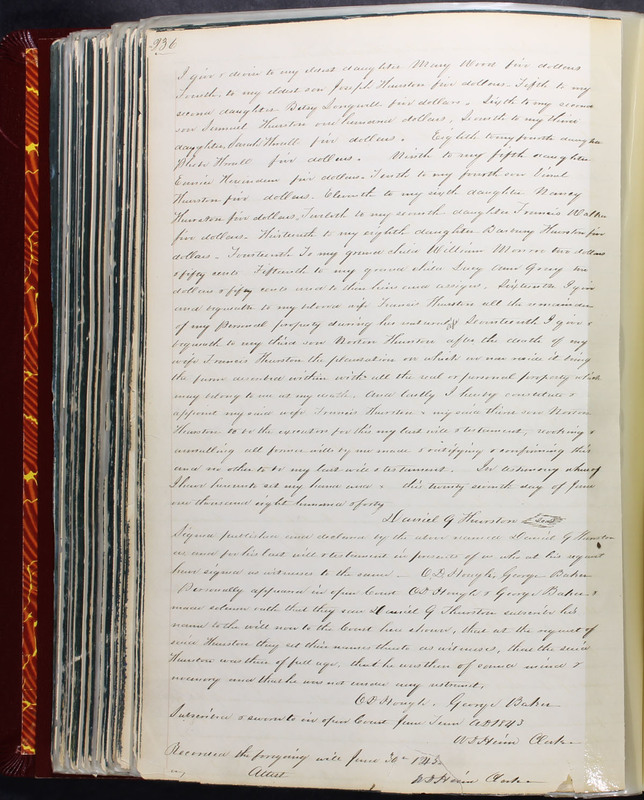 936
I give & devise to my eldest daughter Mary Wood five dollars
Fourth, to my eldest son Joseph Thurston five dollars. Fifth to my
second daughter Betsy Longwell five dollars. Sixth to my second
son Samuel Thurston one hundred dollars, Seventh to my third
daughter Sarah Thrall five dollars. Eighth to my fourth daughter
Phebe Thrall five dollars. Ninth to my fifth daughter
Eunice five dollars. Tenth to my fourth son
Thurston five dollars. Eleventh to my sixth daughter Nancy
Thurston five dollars, Twelfth to my seventh daughter Francis
five dollars. Thirteenth to my eighth daughter Thurston five
dollars. Fourteenth To my grand child William Monroe two dollars
& fifty cents Fifteenth to my grand child Lucy Ann two
dollars & fifty cents and to their heirs and assigns. Sixteenth I give
and bequeath to my beloved wife Francis Thurston all the remainder
of my Personal property during her natural Seventeenth I give &
bequeath to my third son Norton Thurston after the death of my
wife Francis Thurston the plantation on which we now reside it being
the farm described within with all the real or personal property which
may belong to me at my death. And lastly I hereby constitute &
appoint my said wife Francis Thurston & my said third son Norton
Thurston to be the executors for this my last will & testament, revoking &
annulling all former wills by me made & ratifying & confirming this
and no other to be my last will & testament. In testimony whereof
I have hereunto set my hand and this twenty seventh day of June
one thousand eight hundred & forty
Daniel G Thurston Seal
Signed published and declared by the above named Daniel G Thurston
as and for his last will & testament in presence of us who at his request
have signed as witnesses to the same — C D Hough, George Baker
Personally appeared in open Court C D Hough & George Baker &
made solemn oath that they saw Daniel G Thurston subscribe his
name to the will now to the Court here shown, that at the request of
said Thurston they set their names thereto as witnesses, that the said
Thurston was then of full age, that he was then of sound mind &
memory and that he was not under any restraint,
C D Hough. George Baker
Subscribed & sworn to in open Court June Term AD 1843
Clerk
Recorded the foregoing will June 30th 1843.
Attest Clerk